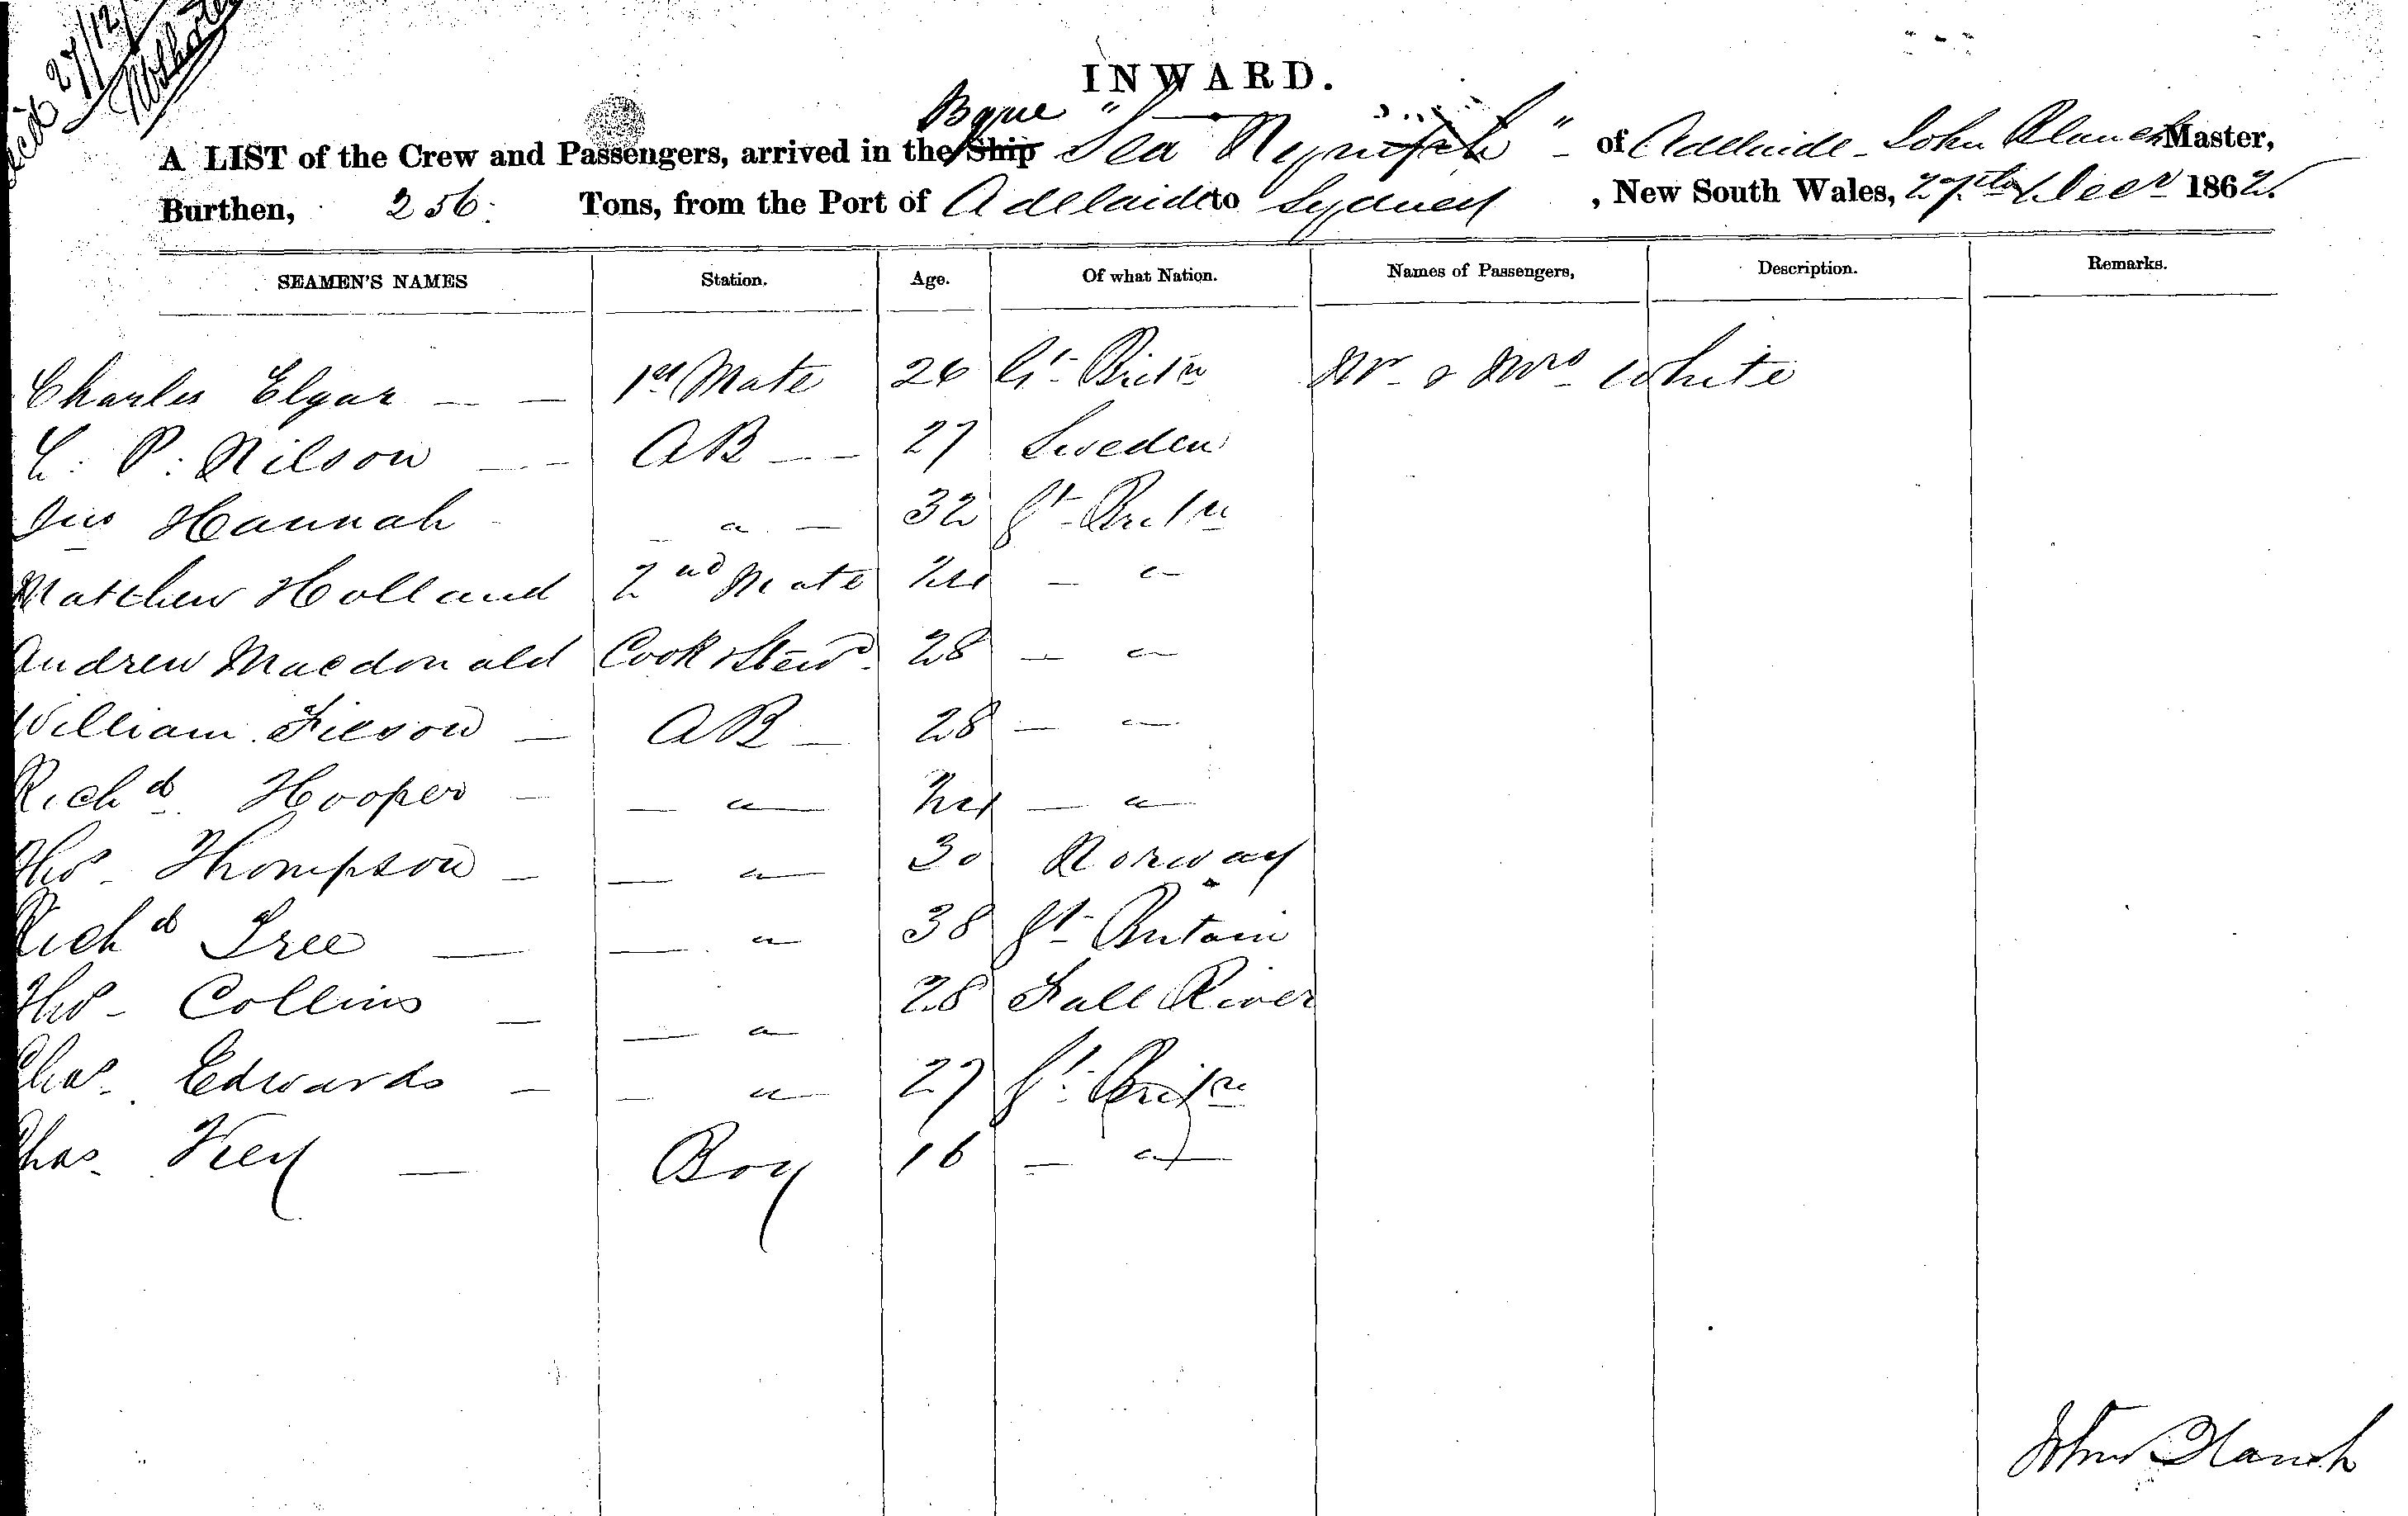 27/12/
INWARD.
Bque
A LIST of the Crew and Passengers, arrived in the Ship "Sea Nymph" of Adelaide - John Blanch Master,
Burthen, 256 Tons, from the Port of Adelaide to Sydney, New South Wales, 27th Decr 1862.
SEAMEN'S NAMES Station. Age. Of what Nation. Names of Passengers, Description. Remarks.
Charles Elgar — — 1st Mate 26 Gt Britn Mr & Mrs White
C. P. Nilson — — AB — — 27 Sweden
Jno Hannah — " — 32 Gt Britn
Matthew Holland 2nd Mate — "
Andrew Macdonald Cook & Stewd 28 — "
William Filson — AB — 28 — "
Richd Hooper — — " — — "
Thos Thompson — — " — 30 Norway
Richd Tree — — " 38 Gt Britain
Thos Collins — — " 28 Fall River
Chas Edwards — — " 27 Gt Britn
Chas Key — Boy 16 — "
John Blanch